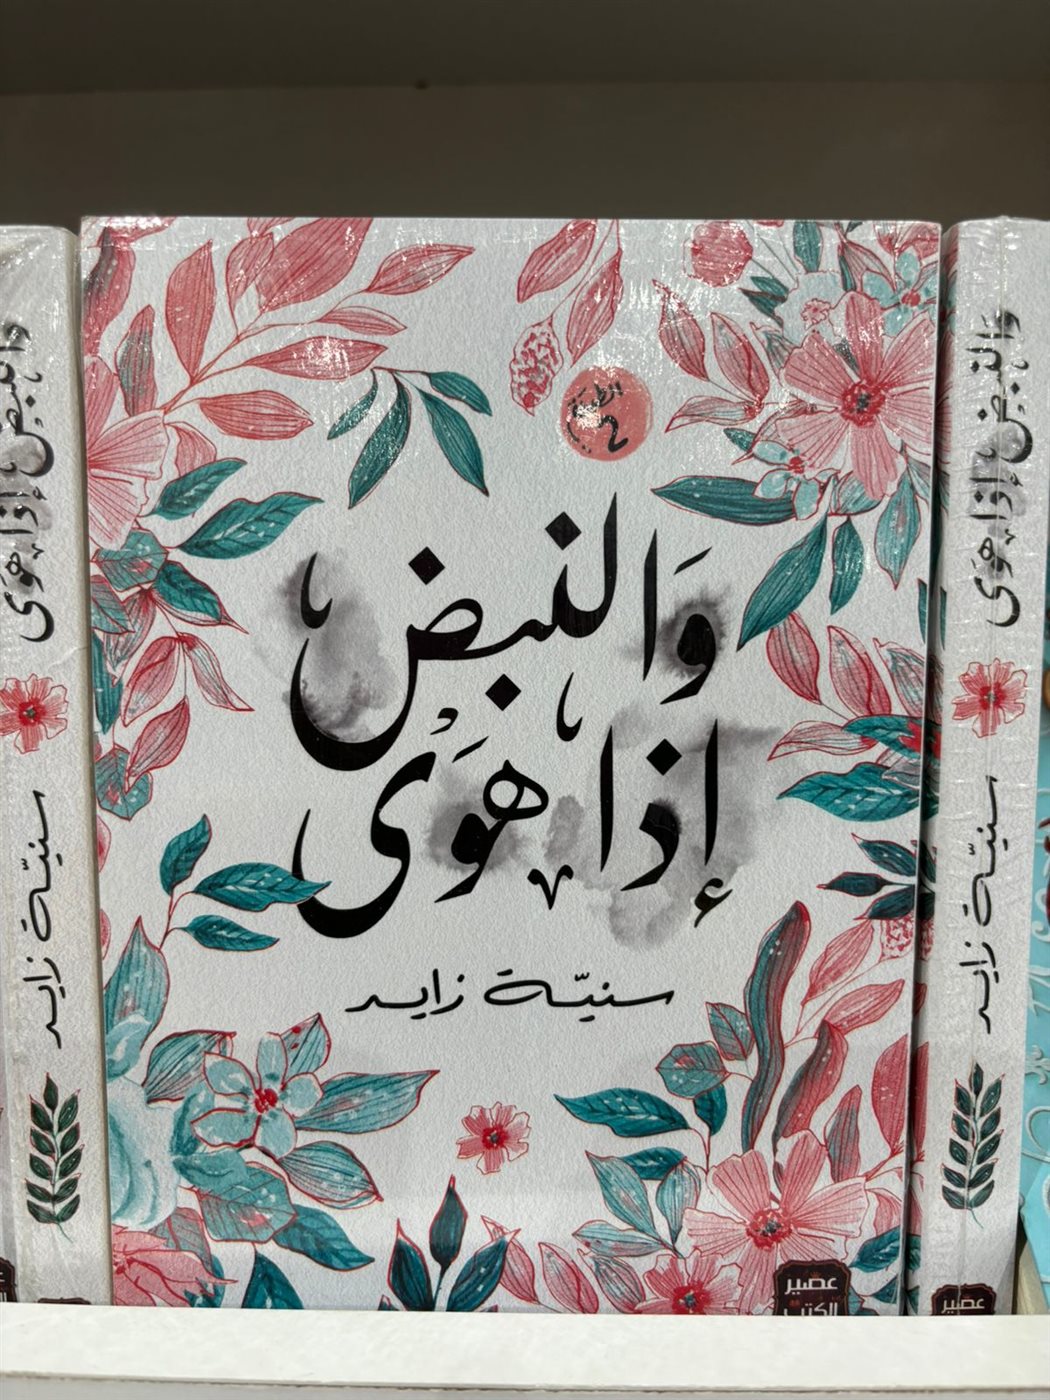 الطبعة
2
وَالنبض
إذا هَوَى
سنيّة زايد
عصير
الكتب
وَالنبض إذا هَوَى
سنيّة زايد
عصير
وَالنبض إذا هَوَى
سنيّة زايد
عصير